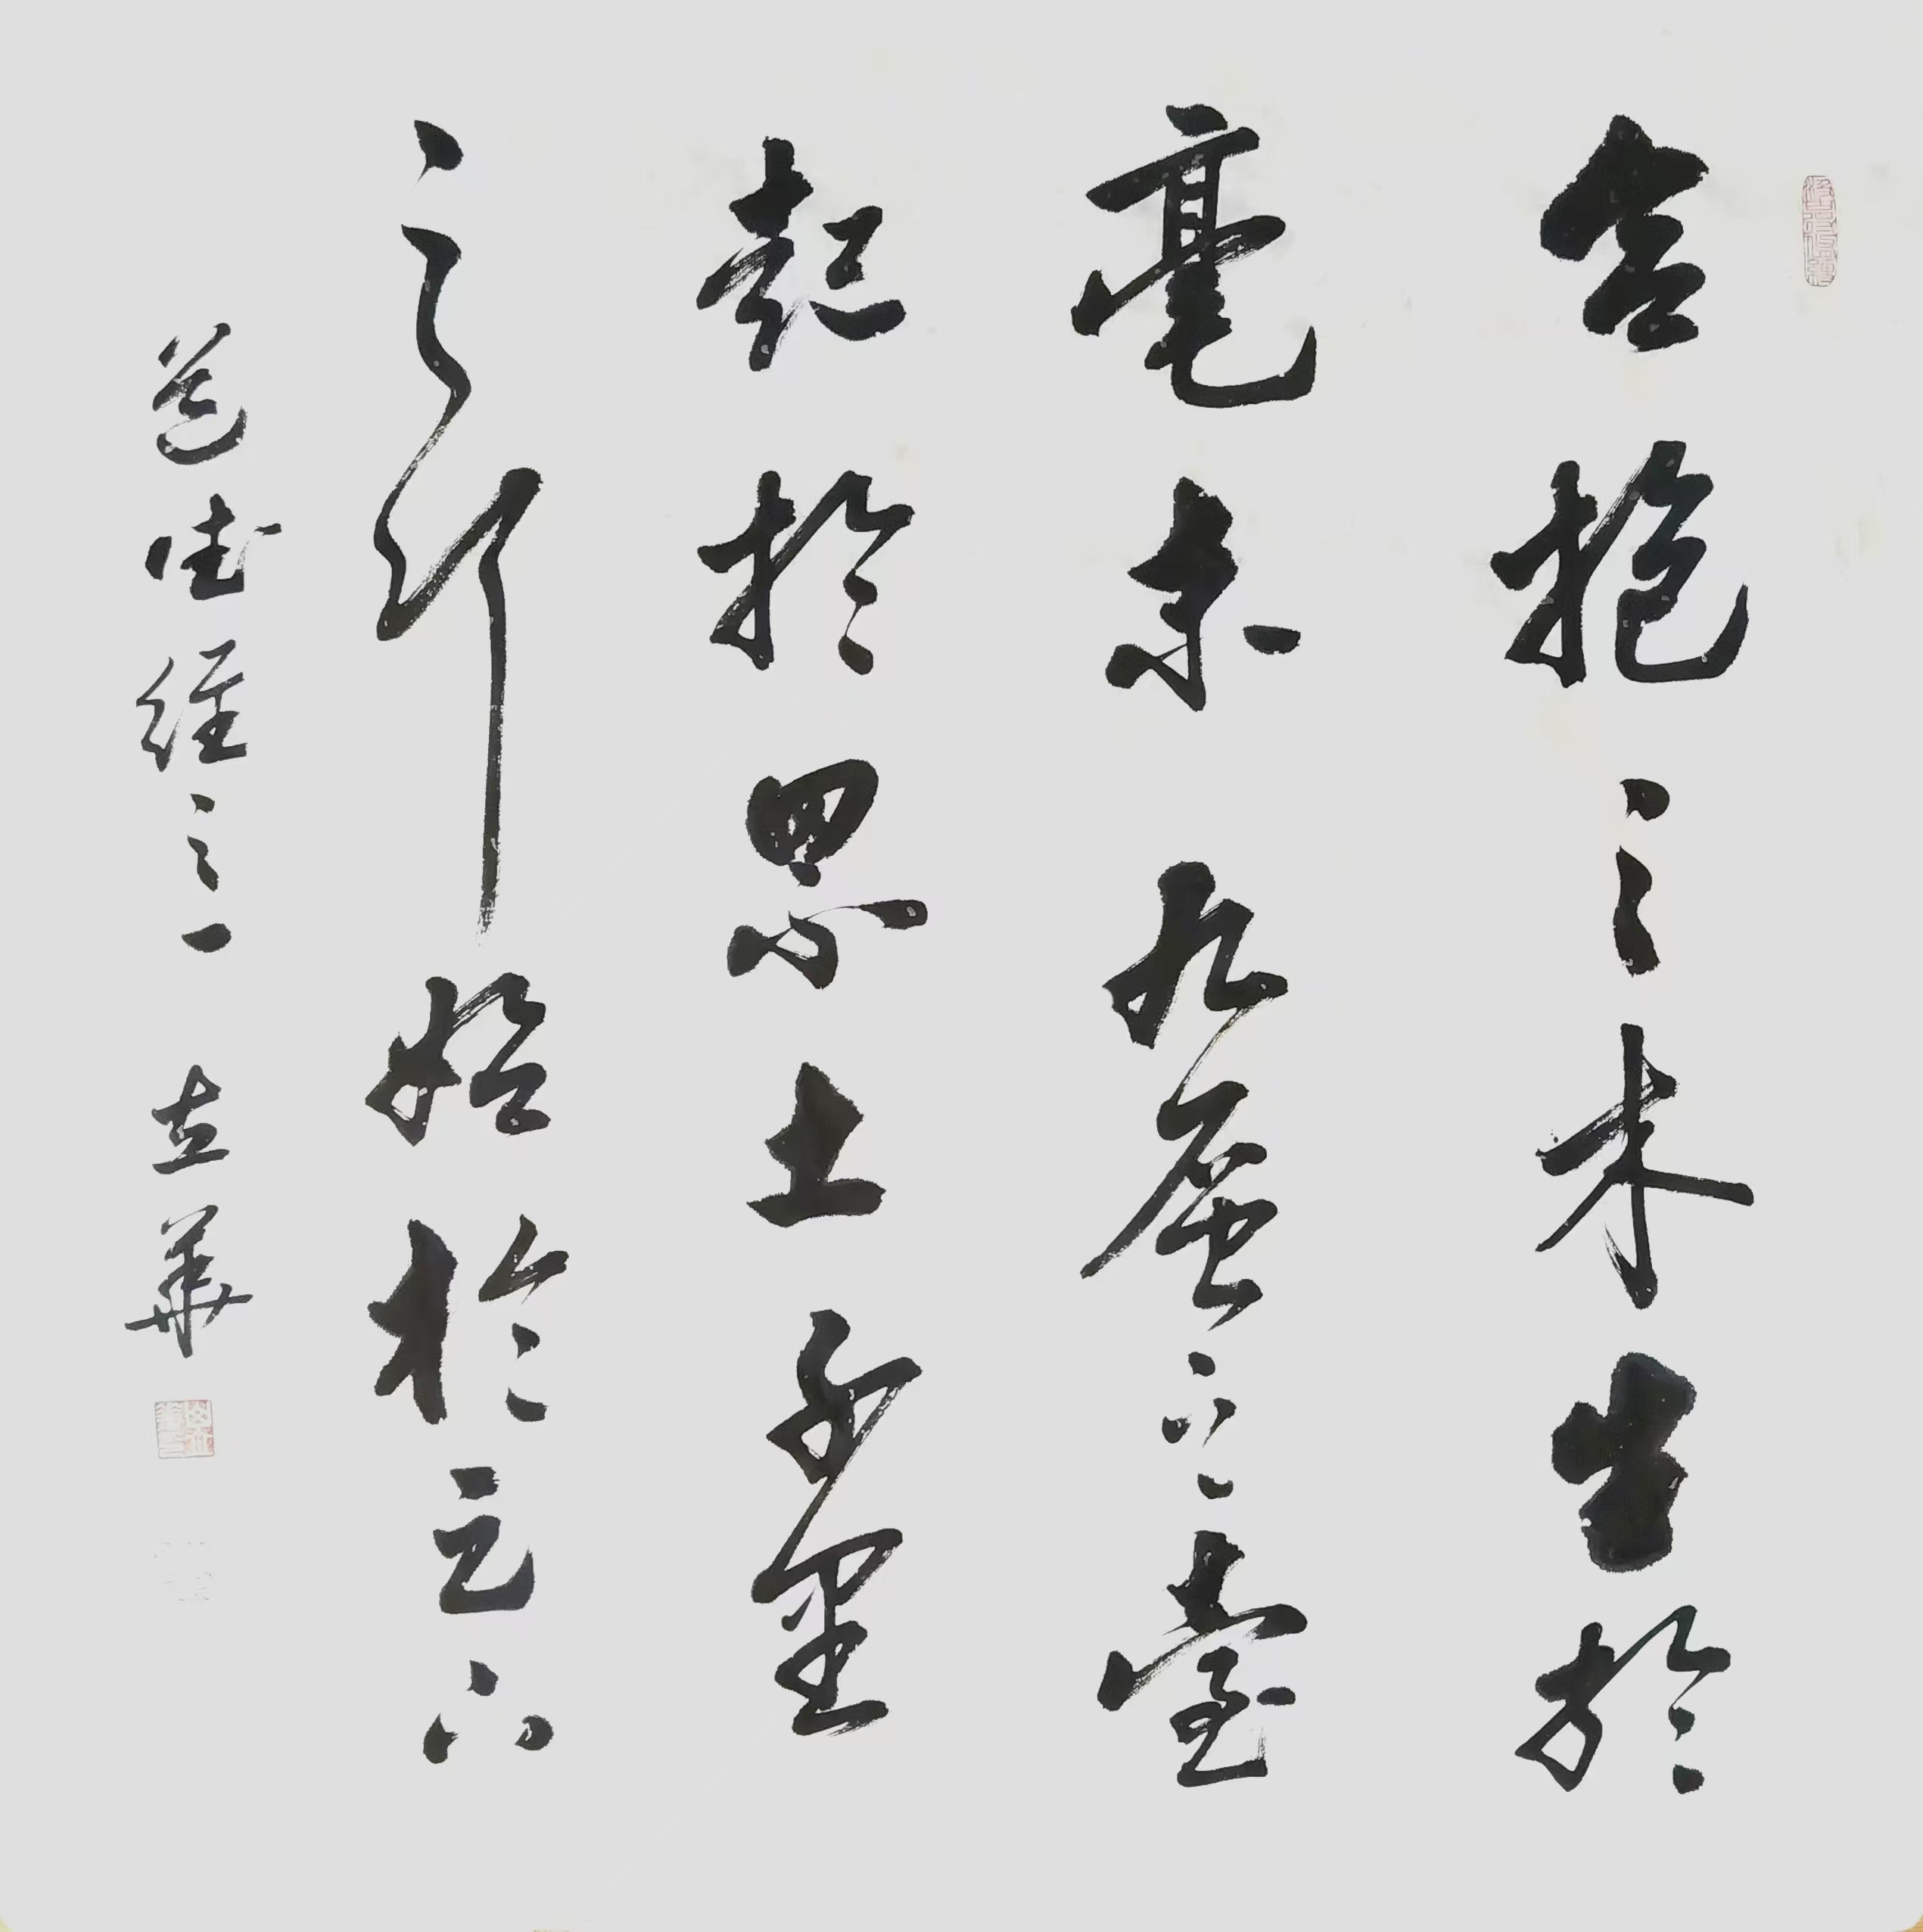 合抱之木生於
毫末九層之臺
起於累土千里
之行始於足下
道德經之一 華